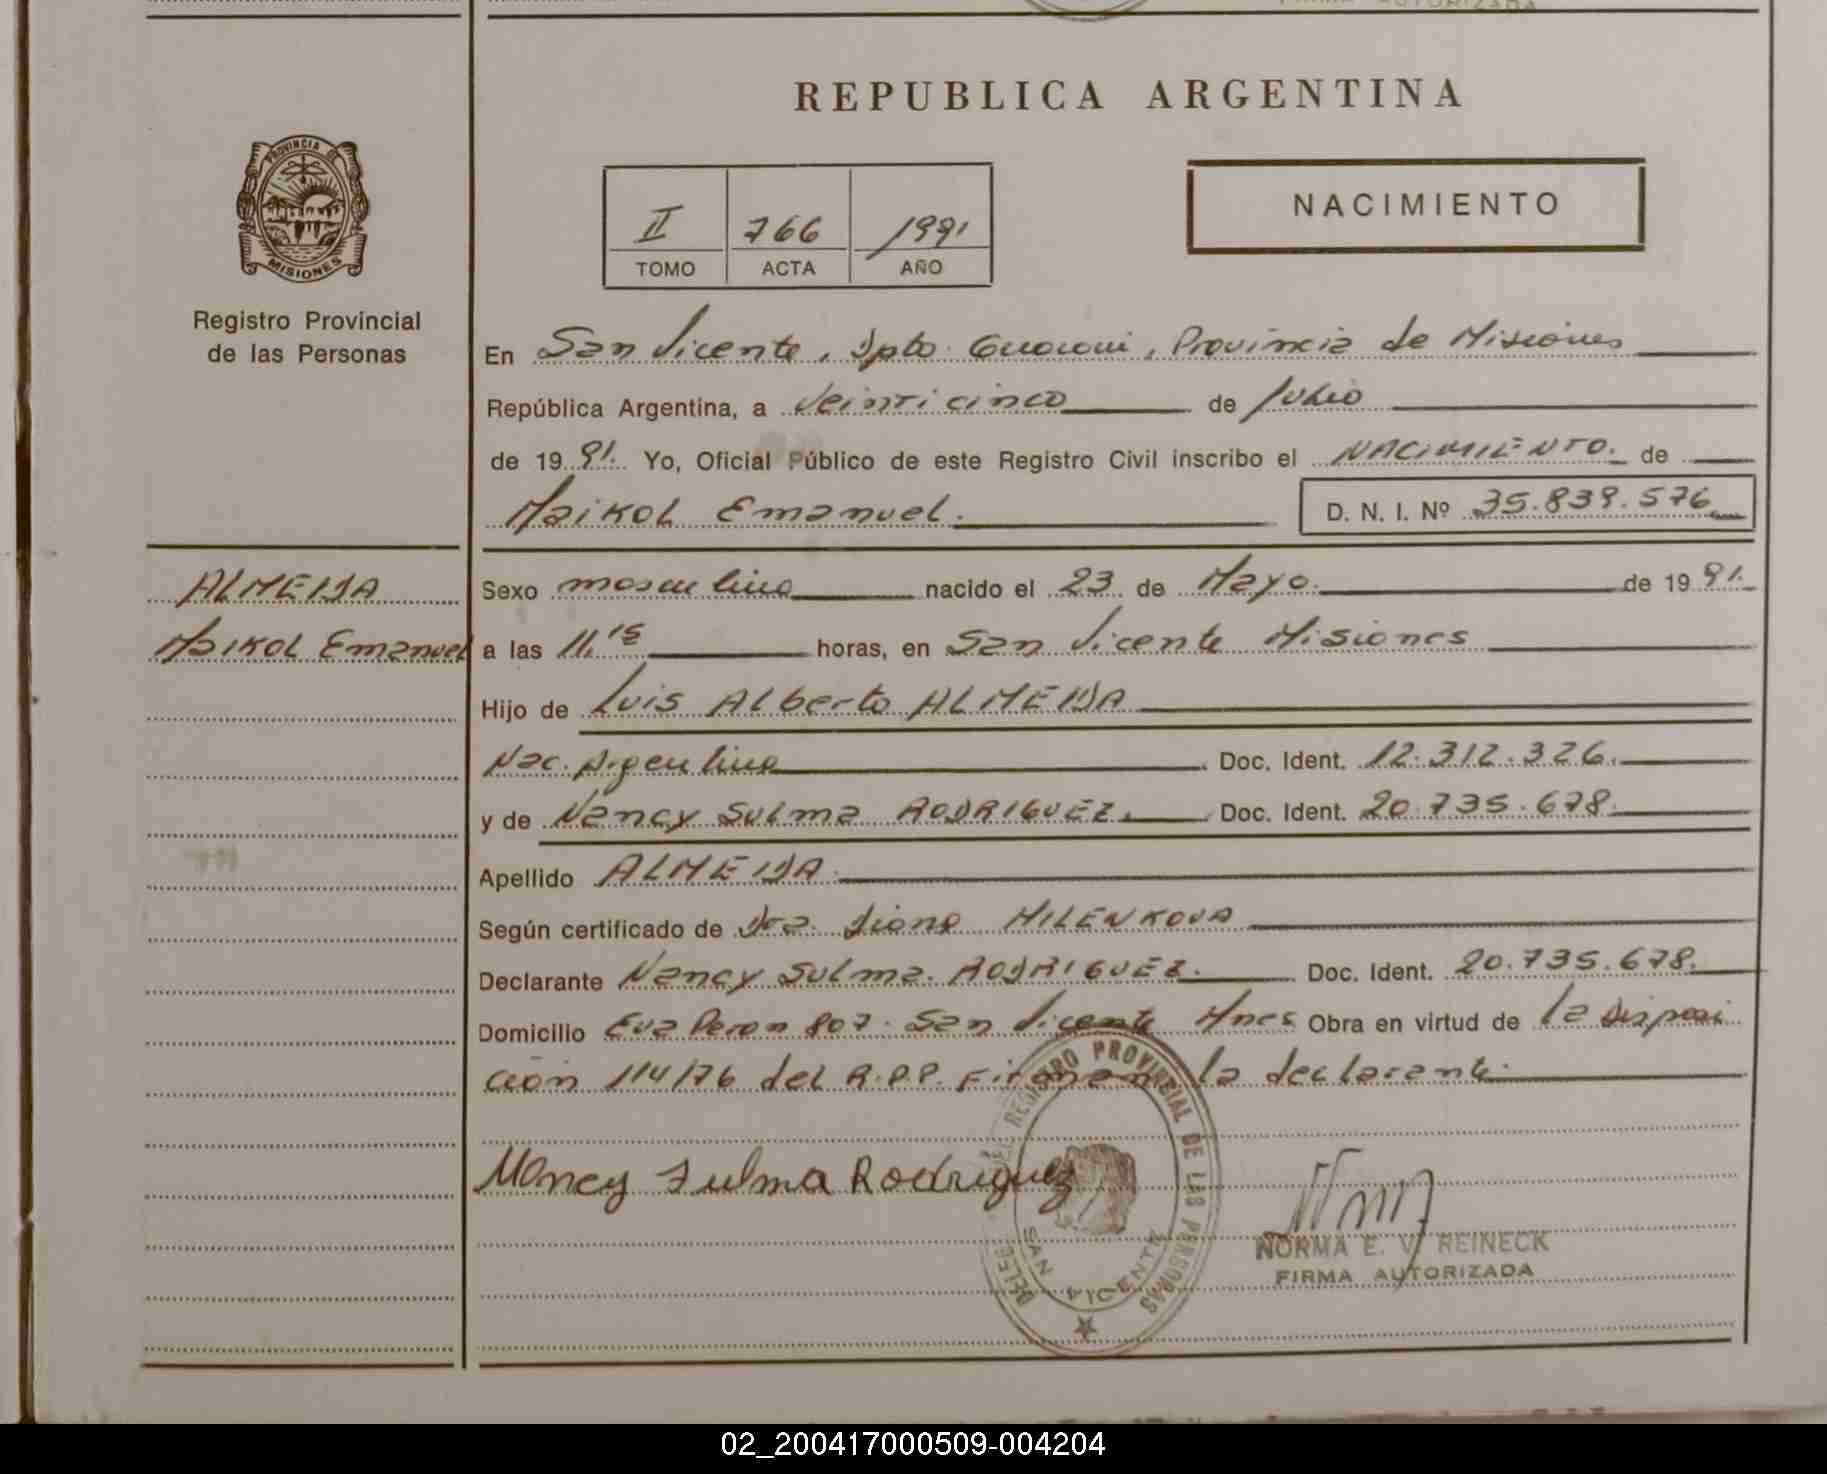 FIRMA AUTORIZADA
REPUBLICA ARGENTINA
PROVINCIA DE
MISIONES
Registro Provincial
de las Personas
II 766 1991
TOMO ACTA AÑO
NACIMIENTO
En San Vicente, Dpto Guarani, Provincia de Misiones
República Argentina, a Veinticinco de Julio
de 1991. Yo, Oficial Público de este Registro Civil inscribo el NACIMIENTO. de
Maikol Emanuel.
D. N. I. Nº 35.839.576
ALMEIDA
Maikol Emanuel
Sexo masculino nacido el 23 de Mayo. de 1991.
a las 11,15 horas, en San Vicente Misiones
Hijo de Luis Alberto ALMEIDA
Nac. Argentina Doc. Ident. 12.312.326.
y de Nancy Sulma RODRIGUEZ. Doc. Ident. 20.735.678.
Apellido ALMEIDA.
Según certificado de Dra. Diona MILENKOVA
Declarante Nancy Sulma. RODRIGUEZ. Doc. Ident. 20.735.678.
Domicilio Eva Peron 807. San Vicente Mnes Obra en virtud de la disposi
cion 114/76 del R.P.P. Firma la declarante.
Nancy Sulma Rodriguez
DELEG DEL REGISTRO PROVINCIAL DE LAS PERSONAS
SAN VICENTE
NORMA E. V. REINECK
FIRMA AUTORIZADA
02_200417000509-004204